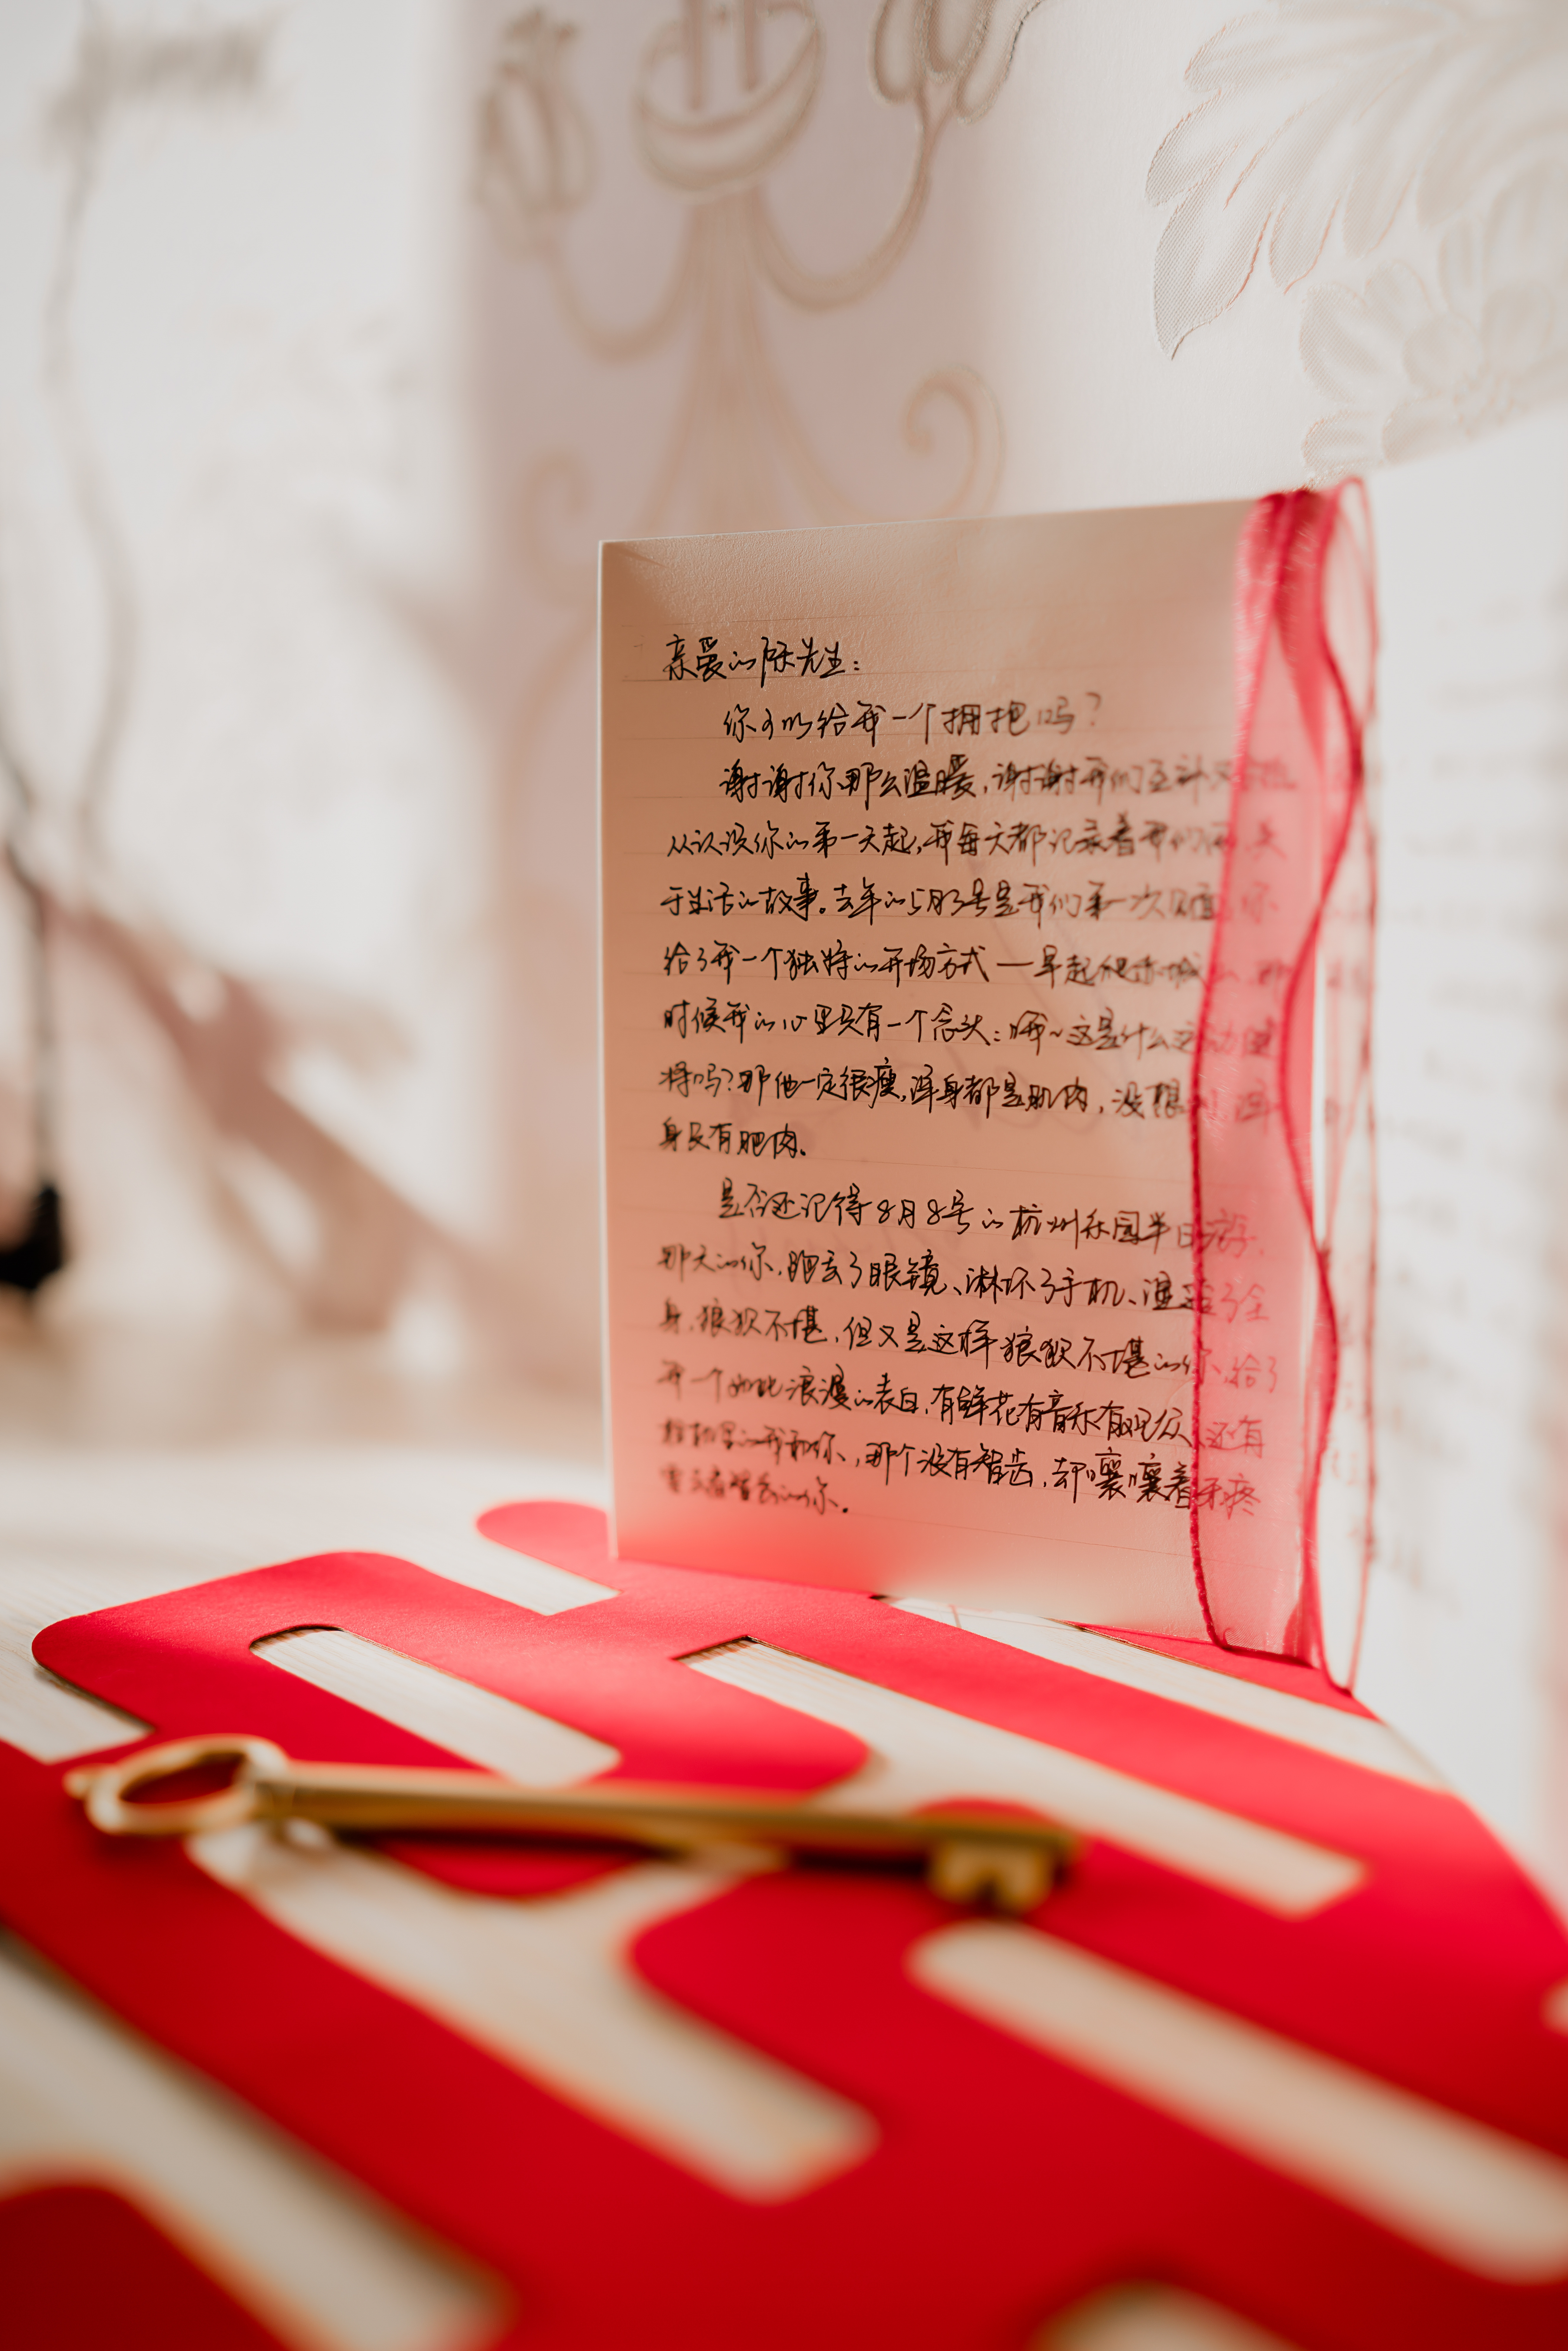 亲爱的陈先生：
你可以给我一个拥抱吗？
谢谢你那么温暖，谢谢我们
从认识你的第一天起，我每天都记录着我们
于生活的故事。去年的5月3号是我们第一次见面，你
给了我一个独特的开场方式—早起爬
时候我的心里只有一个念头：哦~这是什么运动健
将吗？那他一定很瘦，浑身都是肌肉，没想到，浑
身只有肥肉。
是否还记得8月8号的杭州乐园半日游，
那天的你，跑丢了眼镜、淋坏了手机、湿透了全
身，狼狈不堪，但又是这样狼狈不堪的你，给了
我一个如此浪漫的表白，有鲜花有音乐有观众，还有
我和你，那个没有智齿，却嚷嚷着牙疼
的你。